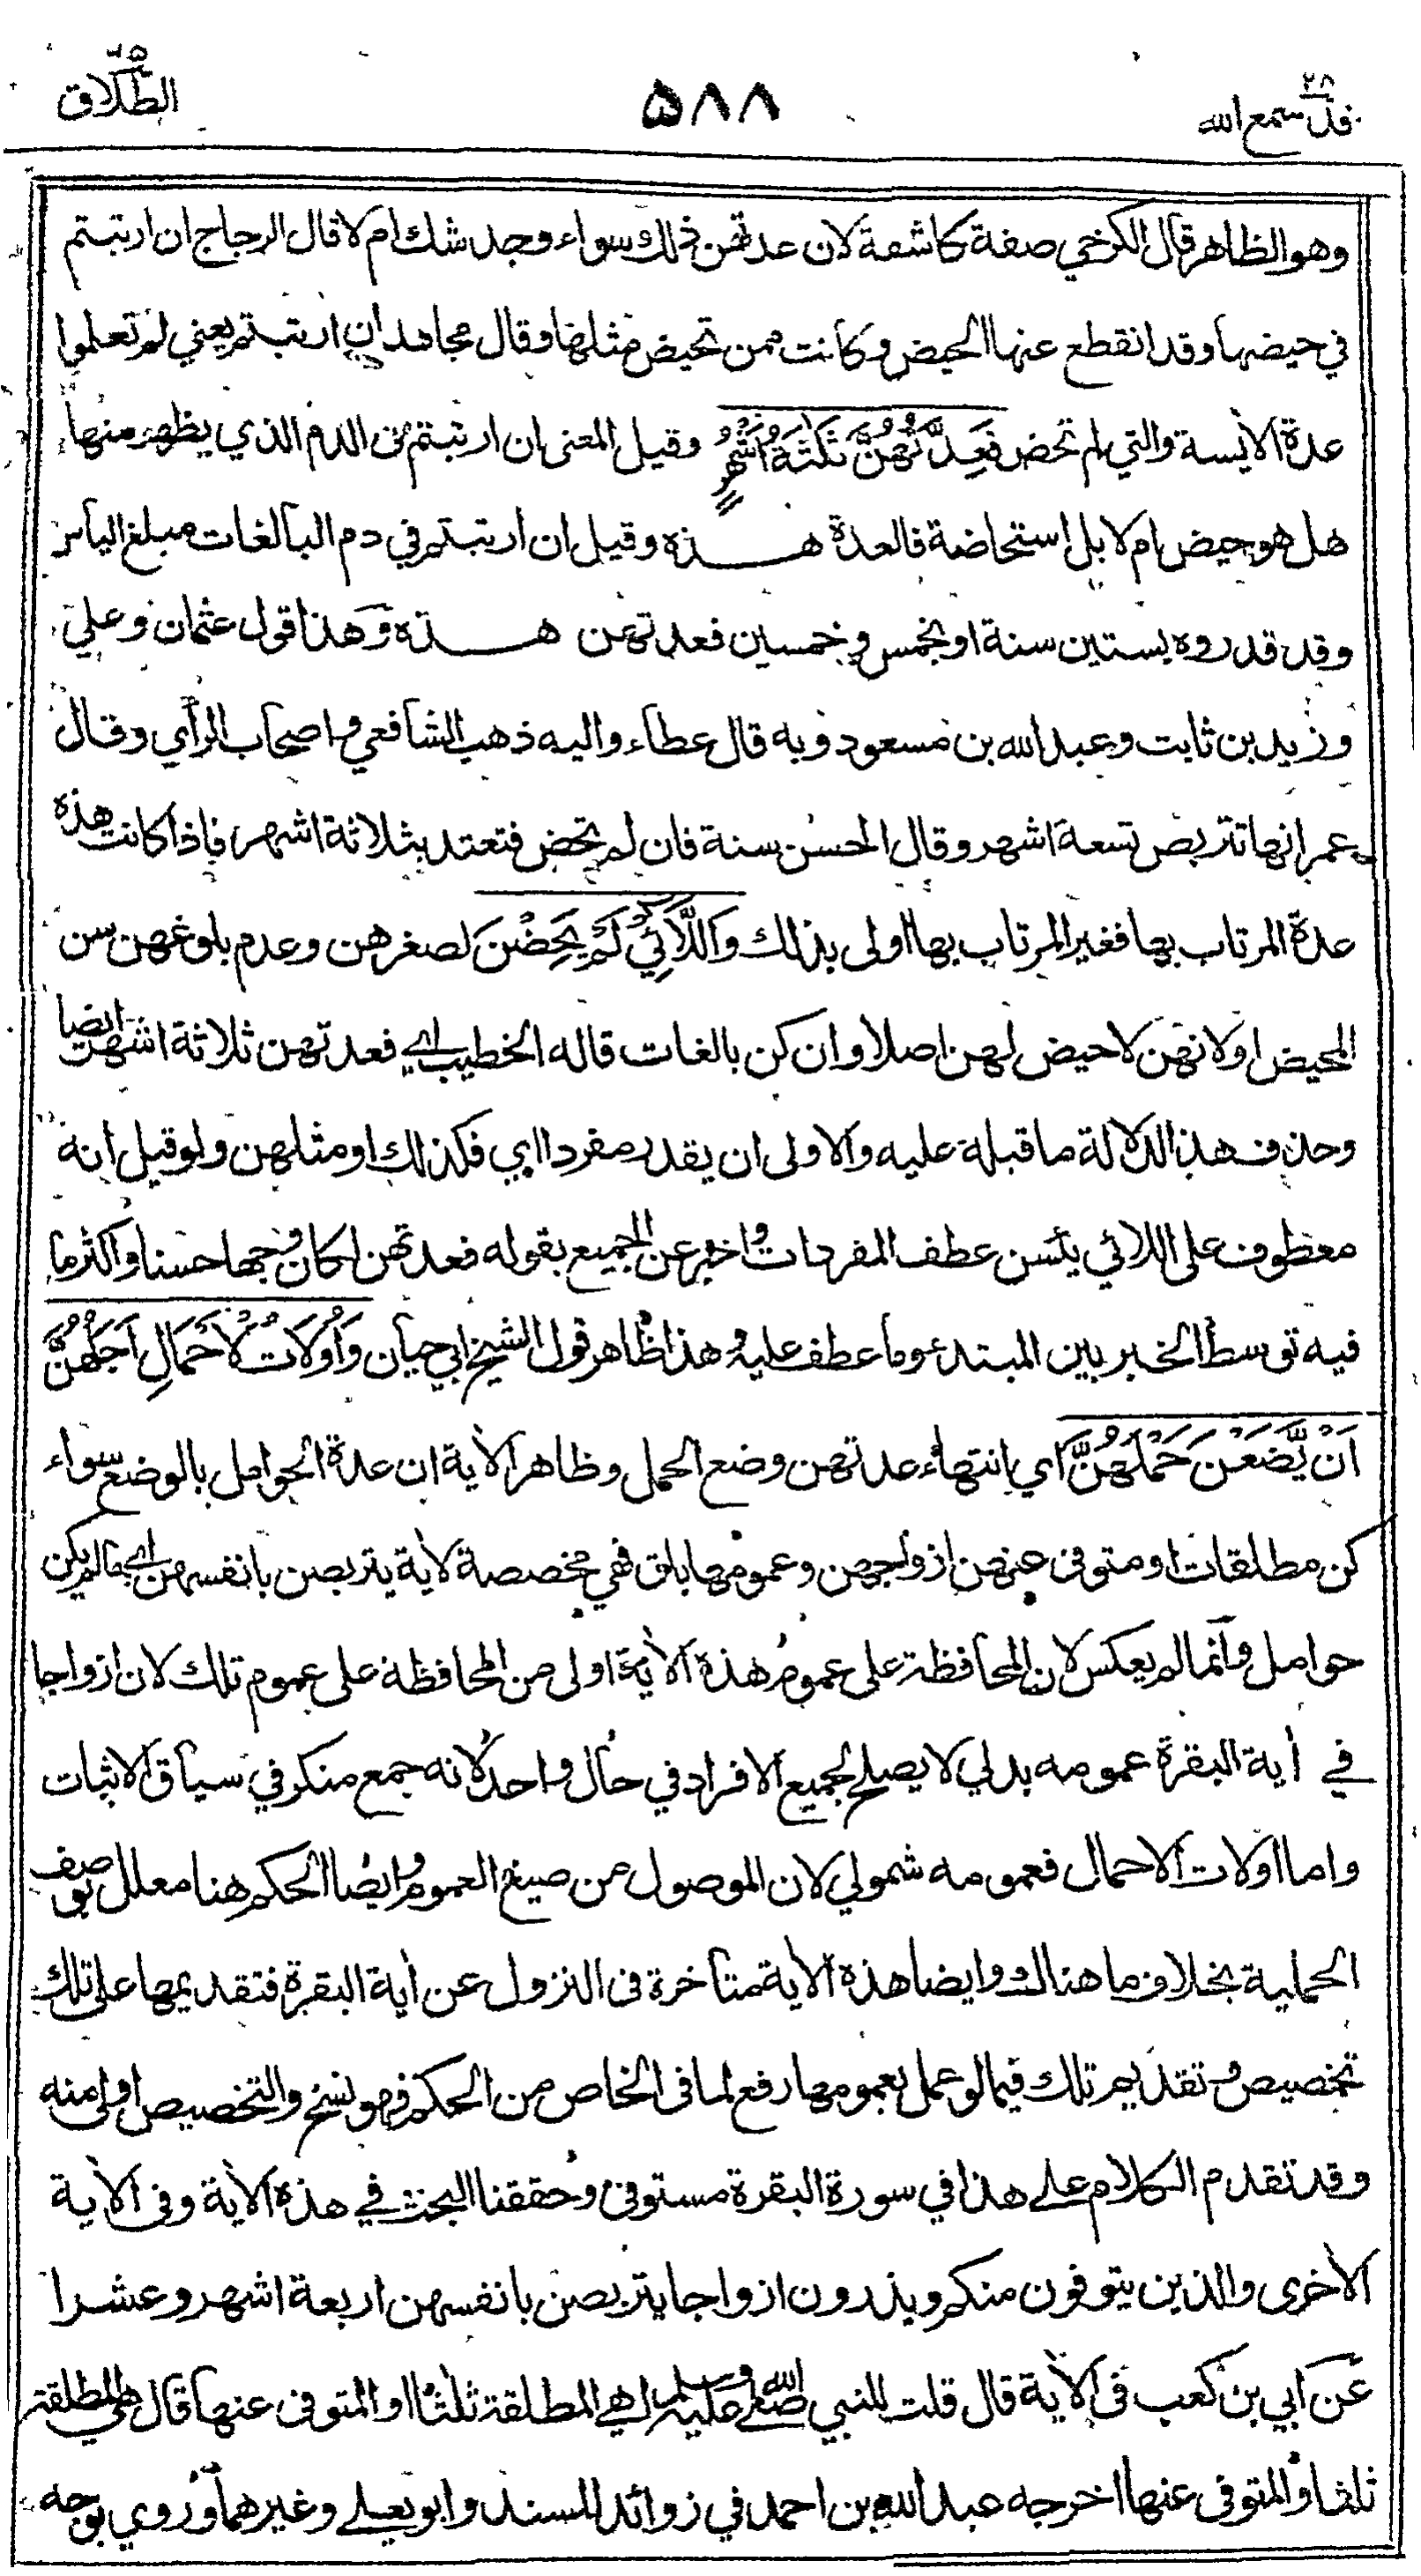 قد سمع الله ٢٨
٥٨٨
الطلاق ٦٥
وهو الظاهر قال الكرخي صفة كاشفة لان عدتهن ذلك سواء وجد شك ام لا قال الزجاج ان ارتبتم
في حيضها وقد انقطع عنها الحيض وكانت ممن تحيض مثلها وقال مجاهد ان ارتبتم يعني لم تعلموا
عدة الآيسة والتي لم تحض فَعِدَّتُهُنَّ ثَلٰثَةُ اَشْهُرٍ وقيل المعنى ان ارتبتم في الدم الذي يظهر منها
هل هو حيض ام لا بل استحاضة فالعدة هذه وقيل ان ارتبتم في دم البالغات مبلغ اليأس
وقد قدروه بستين سنة او بخمس وخمسين فعدتهن هذه وهذا قول عثمان وعلي
وزيد بن ثابت وعبد الله بن مسعود وبه قال عطاء واليه ذهب الشافعي واصحاب الرأي وقال
عمر انها تتربص تسعة اشهر وقال الحسن سنة فان لم تحض فتعتد بثلاثة اشهر فاذا كانت هذه
عدة المرتاب بها فغير المرتاب بها اولى بذلك وَاللَّائِي لَمْ يَحِضْنَ لصغرهن وعدم بلوغهن سن
المحيض او لانهن لا حيض لهن اصلا وان كن بالغات قاله الخطيب اي فعدتهن ثلاثة اشهر ايضا
وحذف هذا لدلالة ما قبله عليه والاولى ان يقدر مفردا اي فكذلك او مثلهن ولو قيل انه
معطوف على اللائي يئسن عطف المفردات واخبر عن الجميع بقوله فعدتهن لكان وجها حسنا واكثر ما
فيه توسط الخبر بين المبتدء وما عطف عليه وهذا ظاهر قول الشيخ ابي حيان وَاُولَاتُ الْاَحْمَالِ اَجَلُهُنَّ
اَنْ يَّضَعْنَ حَمْلَهُنَّ اي انتهاء عدتهن وضع الحمل وظاهر الآية ان عدة الحوامل بالوضع سواء
كن مطلقات او متوفى عنهن ازواجهن وعمومها باق فهي مخصصة لآية يتربصن بانفسهن اي ما لم يكن
حوامل وانما لم يعكس لان المحافظة على عموم هذه الآية اولى من المحافظة على عموم تلك لان ازواجا
في أية البقرة عمومه بدلي لا يصلح لجميع الافراد في حال واحد لانه جمع منكر في سياق الاثبات
واما اولات الاحمال فعمومه شمولي لان الموصول من صيغ العموم وايضا الحكم هنا معلل بوصف
الحملية بخلاف ما هناك وايضا هذه الآية متأخرة في النزول عن أية البقرة فتقديمها على تلك
تخصيص وتقديم تلك فيما لو عمل بعمومها رفع لما في الخاص من الحكم فهو نسخ والتخصيص اولى منه
وقد تقدم الكلام على هذا في سورة البقرة مستوفى وحققنا البحث في هذه الآية وفي الآية
الاخرى والذين يتوفون منكم ويذرون ازواجا يتربصن بانفسهن اربعة اشهر وعشرا
عن ابي بن كعب في الآية قال قلت للنبي صلى الله عليه وسلم اهي المطلقة ثلثا او المتوفى عنها قال هي المطلقة
ثلثا والمتوفى عنها اخرجه عبد الله بن احمد في زوائد المسند وابو يعلى وغيرهما وروي بوجه